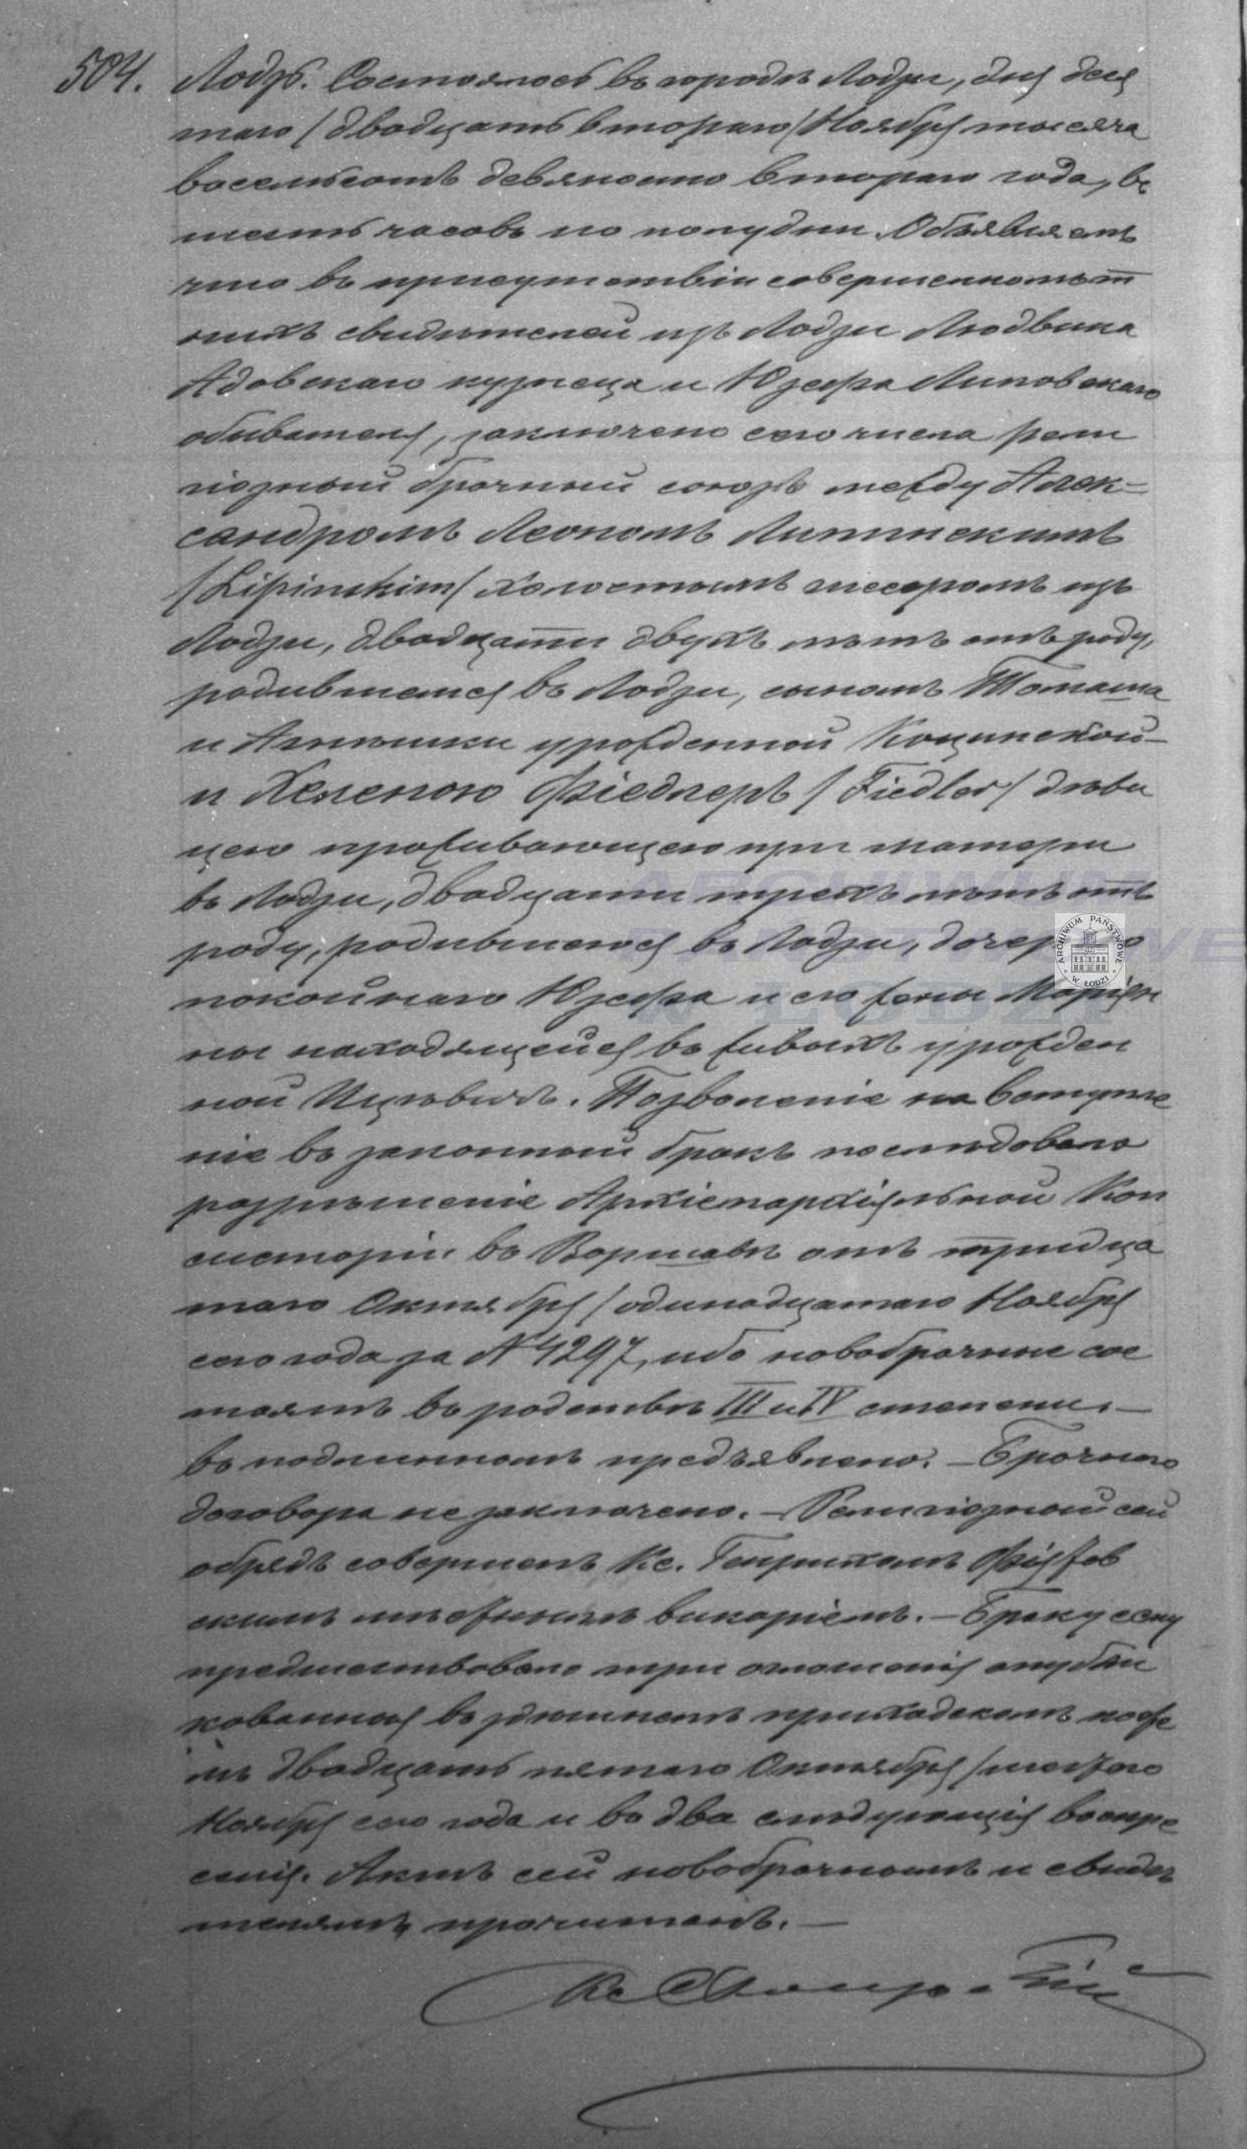 504. Лодзь. Состоялось въ городѣ Лодзи, дня деся
таго /двадцать втораго/ Ноября тысяча
восемьсотъ девяносто втораго года, въ
шесть часовъ по полудни. Объявляемъ
что въ присутствіи совершеннолѣт
нихъ свидѣтелей изъ Лодзи Людвика
Адовскаго кузнеца и Юзефа Липовскаго
обывателя, заключено сего числа рели
гіозный брачный союзъ между Алек=
сандромъ Леономъ Липинскимъ
/Lipinskim/ холостымъ слесаромъ изъ
Лодзи, двадцати двухъ лѣтъ отъ роду,
родившемся въ Лодзи, сыномъ Томаша
и Агнѣшки урожденной Коцинской —
и Хеленою Фіедлеръ /Fiedler/ дѣви
цею проживающею при матери
въ Лодзи, двадцати трехъ лѣтъ отъ
роду, родившеюся въ Лодзи, дочерью
покойнаго Юзефа и его жены Маріян
ны находящейся въ живыхъ урожден
ной . Позволеніе на вступле
ніе въ законный бракъ послѣдовало
разрѣшеніе Архіепархіяльной Кон
систоріи въ Варшавѣ отъ тридца
таго Октября /одинадцатаго Ноября
сего года за № 4297, ибо новобрачные сос
тоятъ въ родствѣ III и IV степени. —
въ подлинномъ предъявлено. — Брачнаго
договора не заключено. — Религіозный сей
обрядъ совершенъ Кс. Генрихомъ Фіяжов
скимъ мѣстнымъ викаріемъ. — Браку сему
предшествовало три оглашенія опубли
кованныя въ здѣшнемъ приходскомъ косте
лѣ двадцать пятаго Октября /шестого
Ноября сего года и въ два слѣдующія воскре
сенія. Актъ сей новобрачнымъ и свидѣ
телямъ прочитанъ. —
Кс
ARCHIWUM
PAŃSTWOWE
W ŁODZI
ARCHIWUM PAŃSTWOWE W ŁODZI